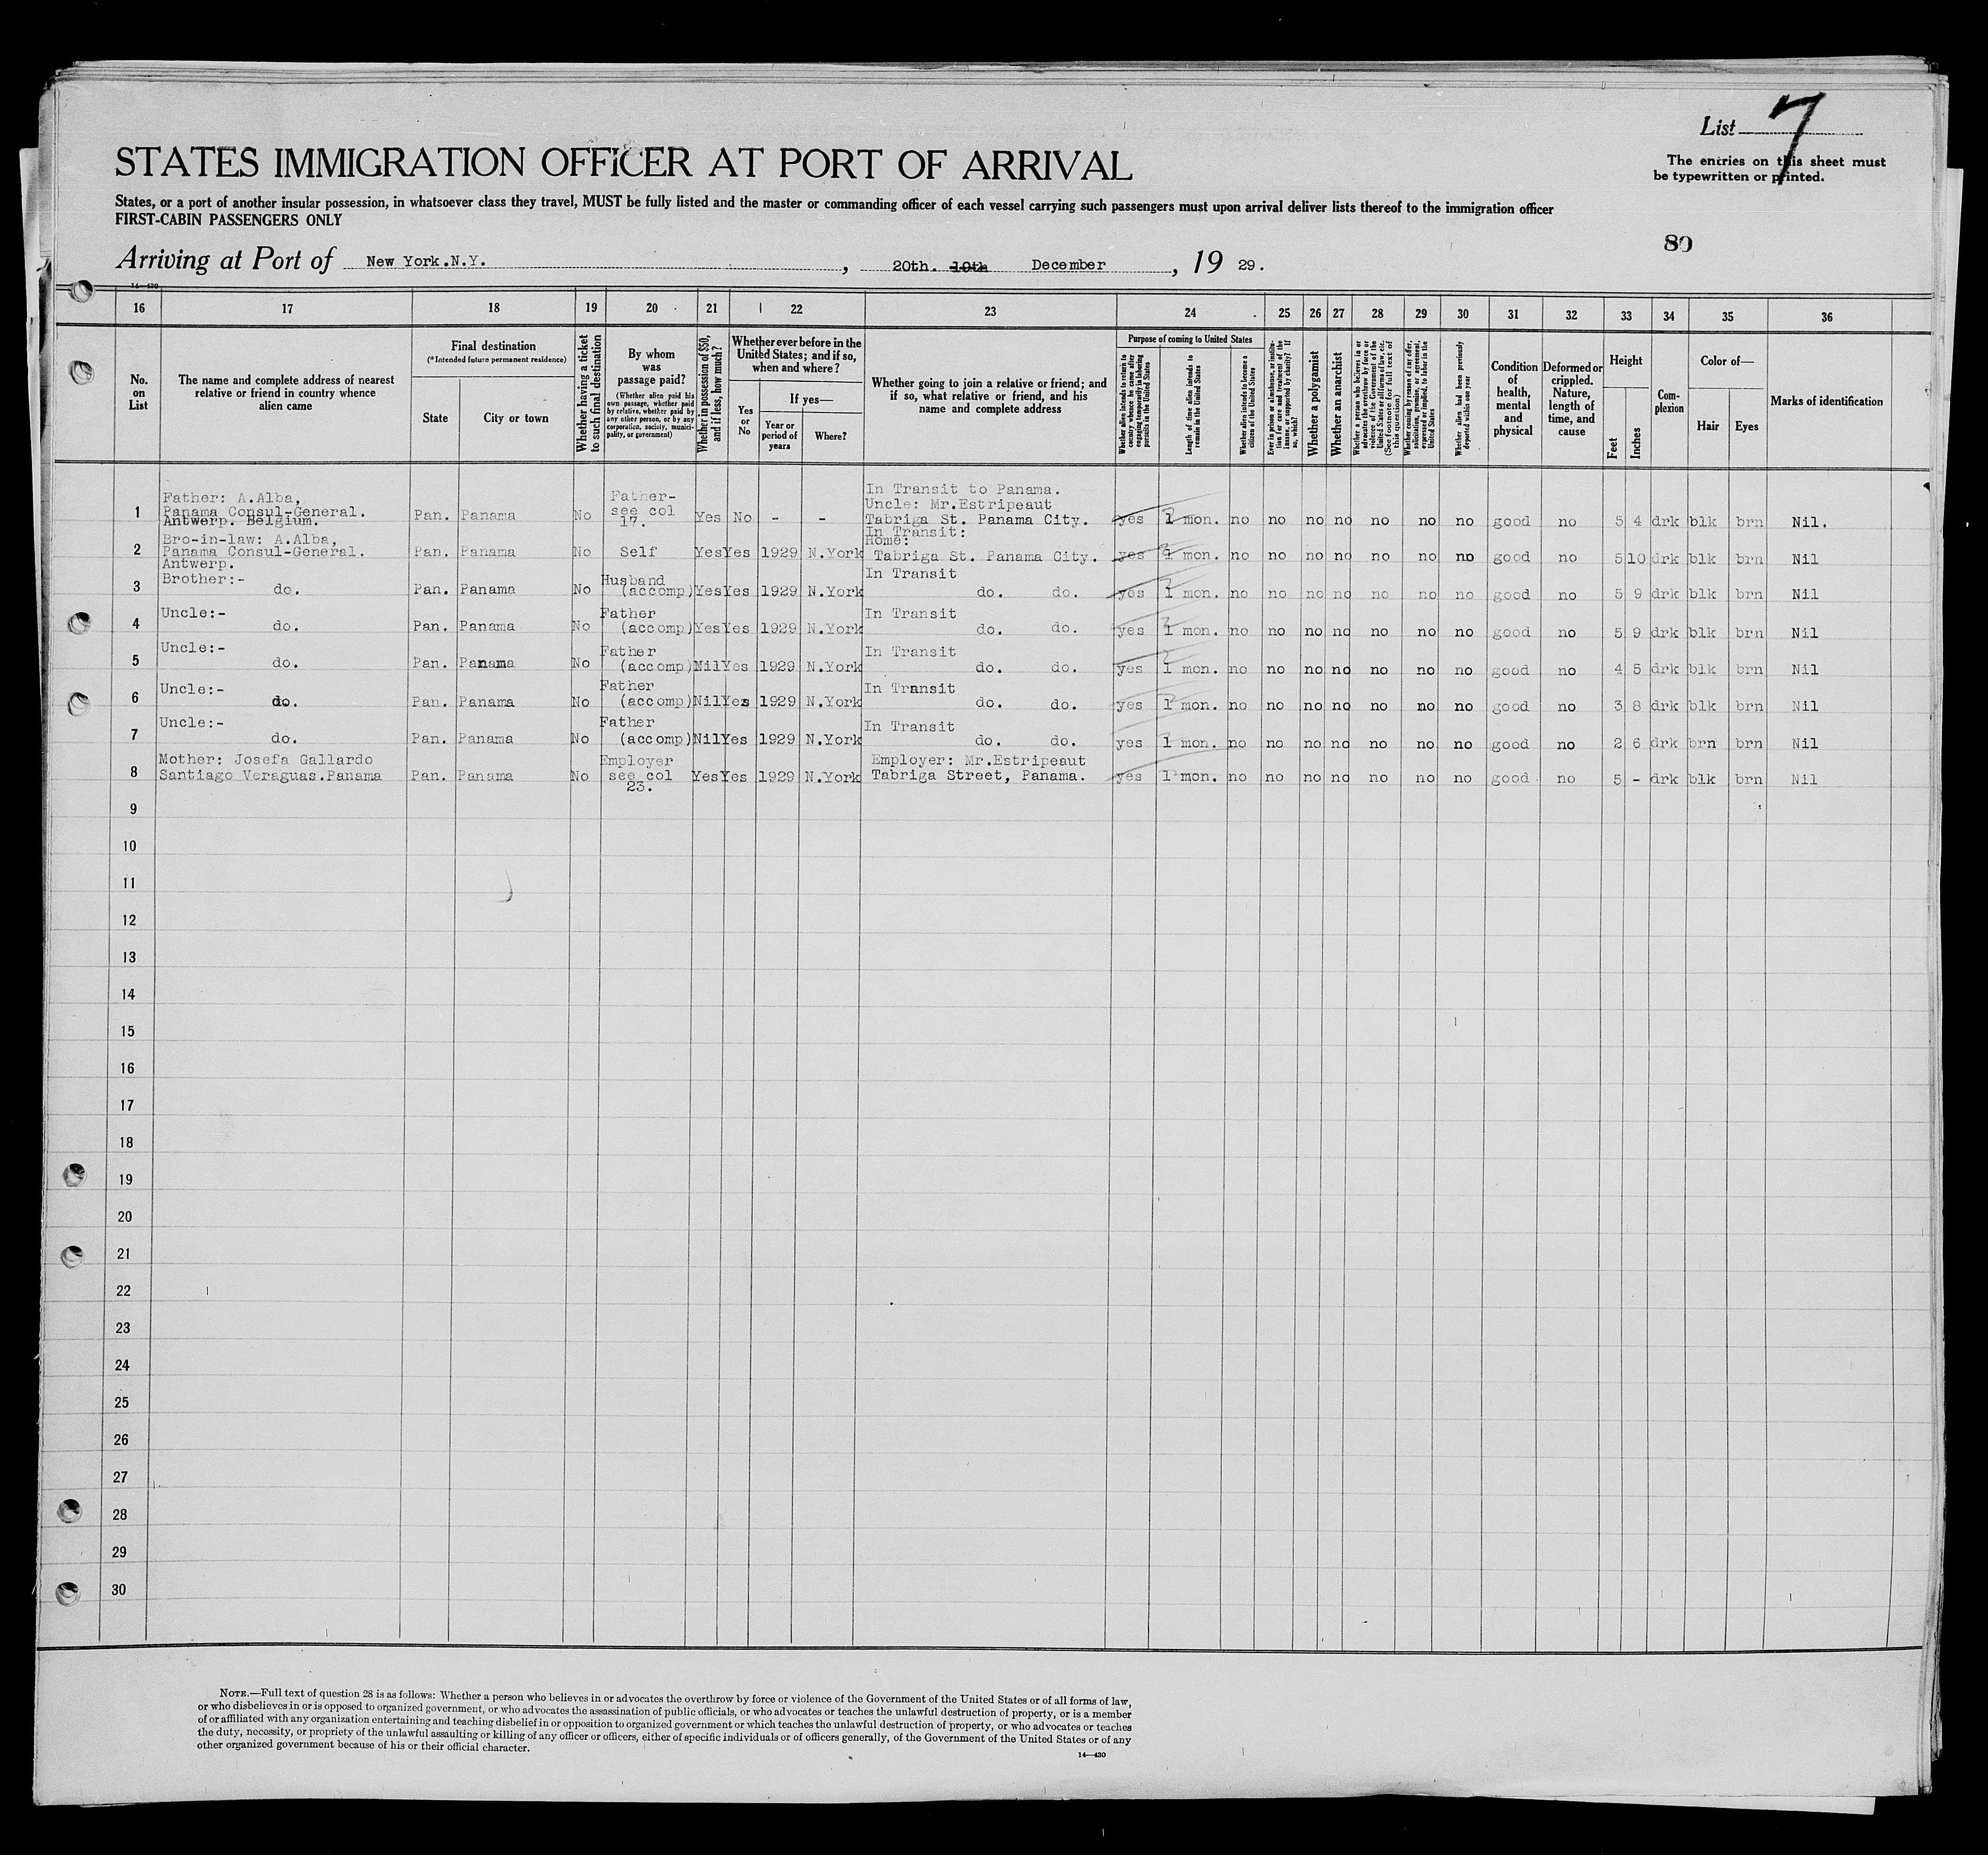 List 7
The entries on this sheet must
be typewritten or printed.
STATES IMMIGRATION OFFICER AT PORT OF ARRIVAL
States, or a port of another insular possession, in whatsoever class they travel, MUST be fully listed and the master or commanding officer of each vessel carrying such passengers must upon arrival deliver lists thereof to the immigration officer
FIRST-CABIN PASSENGERS ONLY
80
Arriving at Port of New York.N.Y. , 20th. 19th December , 19 29.
14—430
16 17 18 19 20 21 22 23 24 25 26 27 28 29 30 31 32 33 34 35 36
No. on List
The name and complete address of nearest relative or friend in country whence alien came
Final destination
(*Intended future permanent residence)
State
City or town
Whether having a ticket to such final destination
By whom was passage paid?
(Whether alien paid his own passage, whether paid by relative, whether paid by any other person, or by any corporation, society, municipality, or government)
Whether in possession of $50, and if less, how much?
Whether ever before in the United States; and if so, when and where?
Yes or No
If yes—
Year or period of years
Where?
Whether going to join a relative or friend; and if so, what relative or friend, and his name and complete address
Purpose of coming to United States
Whether alien intends to return to country whence he came after engaging temporarily in laboring pursuits in the United States
Length of time alien intends to remain in the United States
Whether alien intends to become a citizen of the United States
Ever in prison or almshouse, or institution for care and treatment of the insane, or supported by charity? If so, which?
Whether a polygamist
Whether an anarchist
Whether a person who believes in or advocates the overthrow by force or violence of the Government of the United States or all forms of law, etc. (See footnote for full text of this question)
Whether coming by reason of any offer, solicitation, promise, or agreement, expressed or implied, to labor in the United States
Whether alien had been previously deported within one year
Condition of health, mental and physical
Deformed or crippled. Nature, length of time, and cause
Height
Feet
Inches
Complexion
Color of—
Hair
Eyes
Marks of identification
1 Father: A.Alba, Panama Consul-General. Antwerp. Belgium. Pan. Panama No Father- see col 17. Yes No - - In Transit to Panama. Uncle: Mr.Estripeaut Tabriga St. Panama City. yes 1 mon. no no no no no no no good no 5 4 drk blk brn Nil.
2 Bro-in-law: A.Alba, Panama Consul-General. Antwerp. Pan. Panama No Self Yes Yes 1929 N.York In Transit: Home: Tabriga St. Panama City. yes 1 mon. no no no no no no no good no 5 10 drk blk brn Nil
3 Brother:- do. Pan. Panama No Husband (accomp) Yes Yes 1929 N.York In Transit do. do. yes 1 mon. no no no no no no no good no 5 9 drk blk brn Nil
4 Uncle:- do. Pan. Panama No Father (accomp) Yes Yes 1929 N.York In Transit do. do. yes 1 mon. no no no no no no no good no 5 9 drk blk brn Nil
5 Uncle:- do. Pan. Panama No Father (accomp) Nil Yes 1929 N.York In Transit do. do. yes 1 mon. no no no no no no no good no 4 5 drk blk brn Nil
6 Uncle:- do. Pan. Panama No Father (accomp) Nil Yes 1929 N.York In Transit do. do. yes 1 mon. no no no no no no no good no 3 8 drk blk brn Nil
7 Uncle:- do. Pan. Panama No Father (accomp) Nil Yes 1929 N.York In Transit do. do. yes 1 mon. no no no no no no no good no 2 6 drk brn brn Nil
8 Mother: Josefa Gallardo Santiago Veraguas.Panama Pan. Panama No Employer see col 23. Yes Yes 1929 N.York Employer: Mr.Estripeaut Tabriga Street, Panama. yes 1 mon. no no no no no no no good no 5 - drk blk brn Nil
9
10
11
12
13
14
15
16
17
18
19
20
21
22
23
24
25
26
27
28
29
30
NOTE.—Full text of question 28 is as follows: Whether a person who believes in or advocates the overthrow by force or violence of the Government of the United States or of all forms of law,
or who disbelieves in or is opposed to organized government, or who advocates the assassination of public officials, or who advocates or teaches the unlawful destruction of property, or is a member
of or affiliated with any organization entertaining and teaching disbelief in or opposition to organized government or which teaches the unlawful destruction of property, or who advocates or teaches
the duty, necessity, or propriety of the unlawful assaulting or killing of any officer or officers, either of specific individuals or of officers generally, of the Government of the United States or of any
other organized government because of his or their official character.
14—430